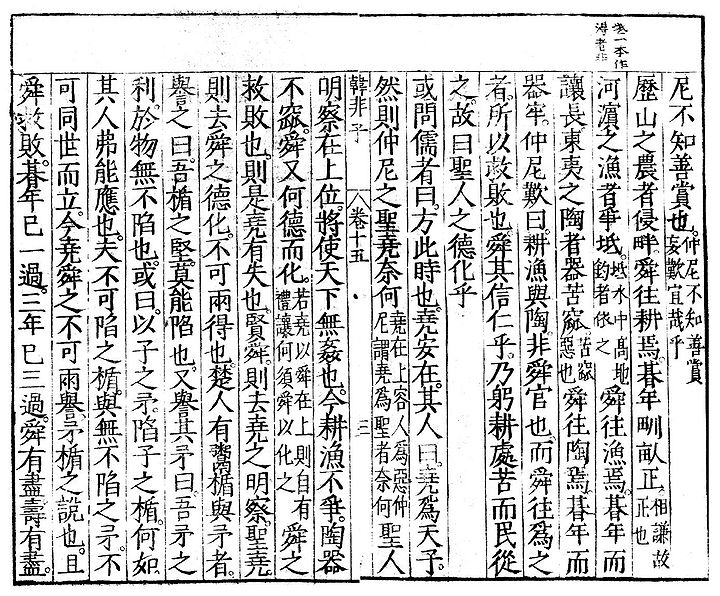 一本作
者非
尼不知善賞也。仲尼不知善賞亥歎宜哉乎
歷山之農者侵畔舜往耕焉。朞年甽畝正。相謙故正也
河濵之漁者爭坻。坻水中高地釣者依之舜往漁焉。朞年而
讓長。東夷之陶者器苦窳。苦窳惡也舜往陶焉。朞年而
器牢。仲尼歎曰。耕漁與陶。非舜官也。而舜往爲之
者。所以救敗也。舜其信仁乎。乃躬耕處苦而民從
之。故曰聖人之德化乎
或問儒者曰。方此時也。堯安在。其人曰。堯爲天子。
然則仲尼之聖堯奈何堯在上容人爲惡仲尼謂堯爲聖者奈何聖人
韓非子 卷十五 三
明察在上位。將使天下無姦也。今耕漁不爭。陶器
不窳。舜又何德而化。若堯以舜在上則自有禮讓何須舜以化之舜之
救敗也。則是堯有失也。賢舜。則去堯之明察。聖堯。
則去舜之德化。不可兩得也。楚人有鬻楯與矛者。
譽之曰。吾楯之堅。莫能陷也。又譽其矛曰。吾矛之
利。於物無不陷也。或曰。以子之矛。陷子之楯。何如。
其人弗能應也。夫不可陷之楯。與無不陷之矛。不
可同世而立。今堯舜之不可兩譽。矛楯之說也。且
舜救敗。朞年已一過。三年已三過。舜有盡。壽有盡。